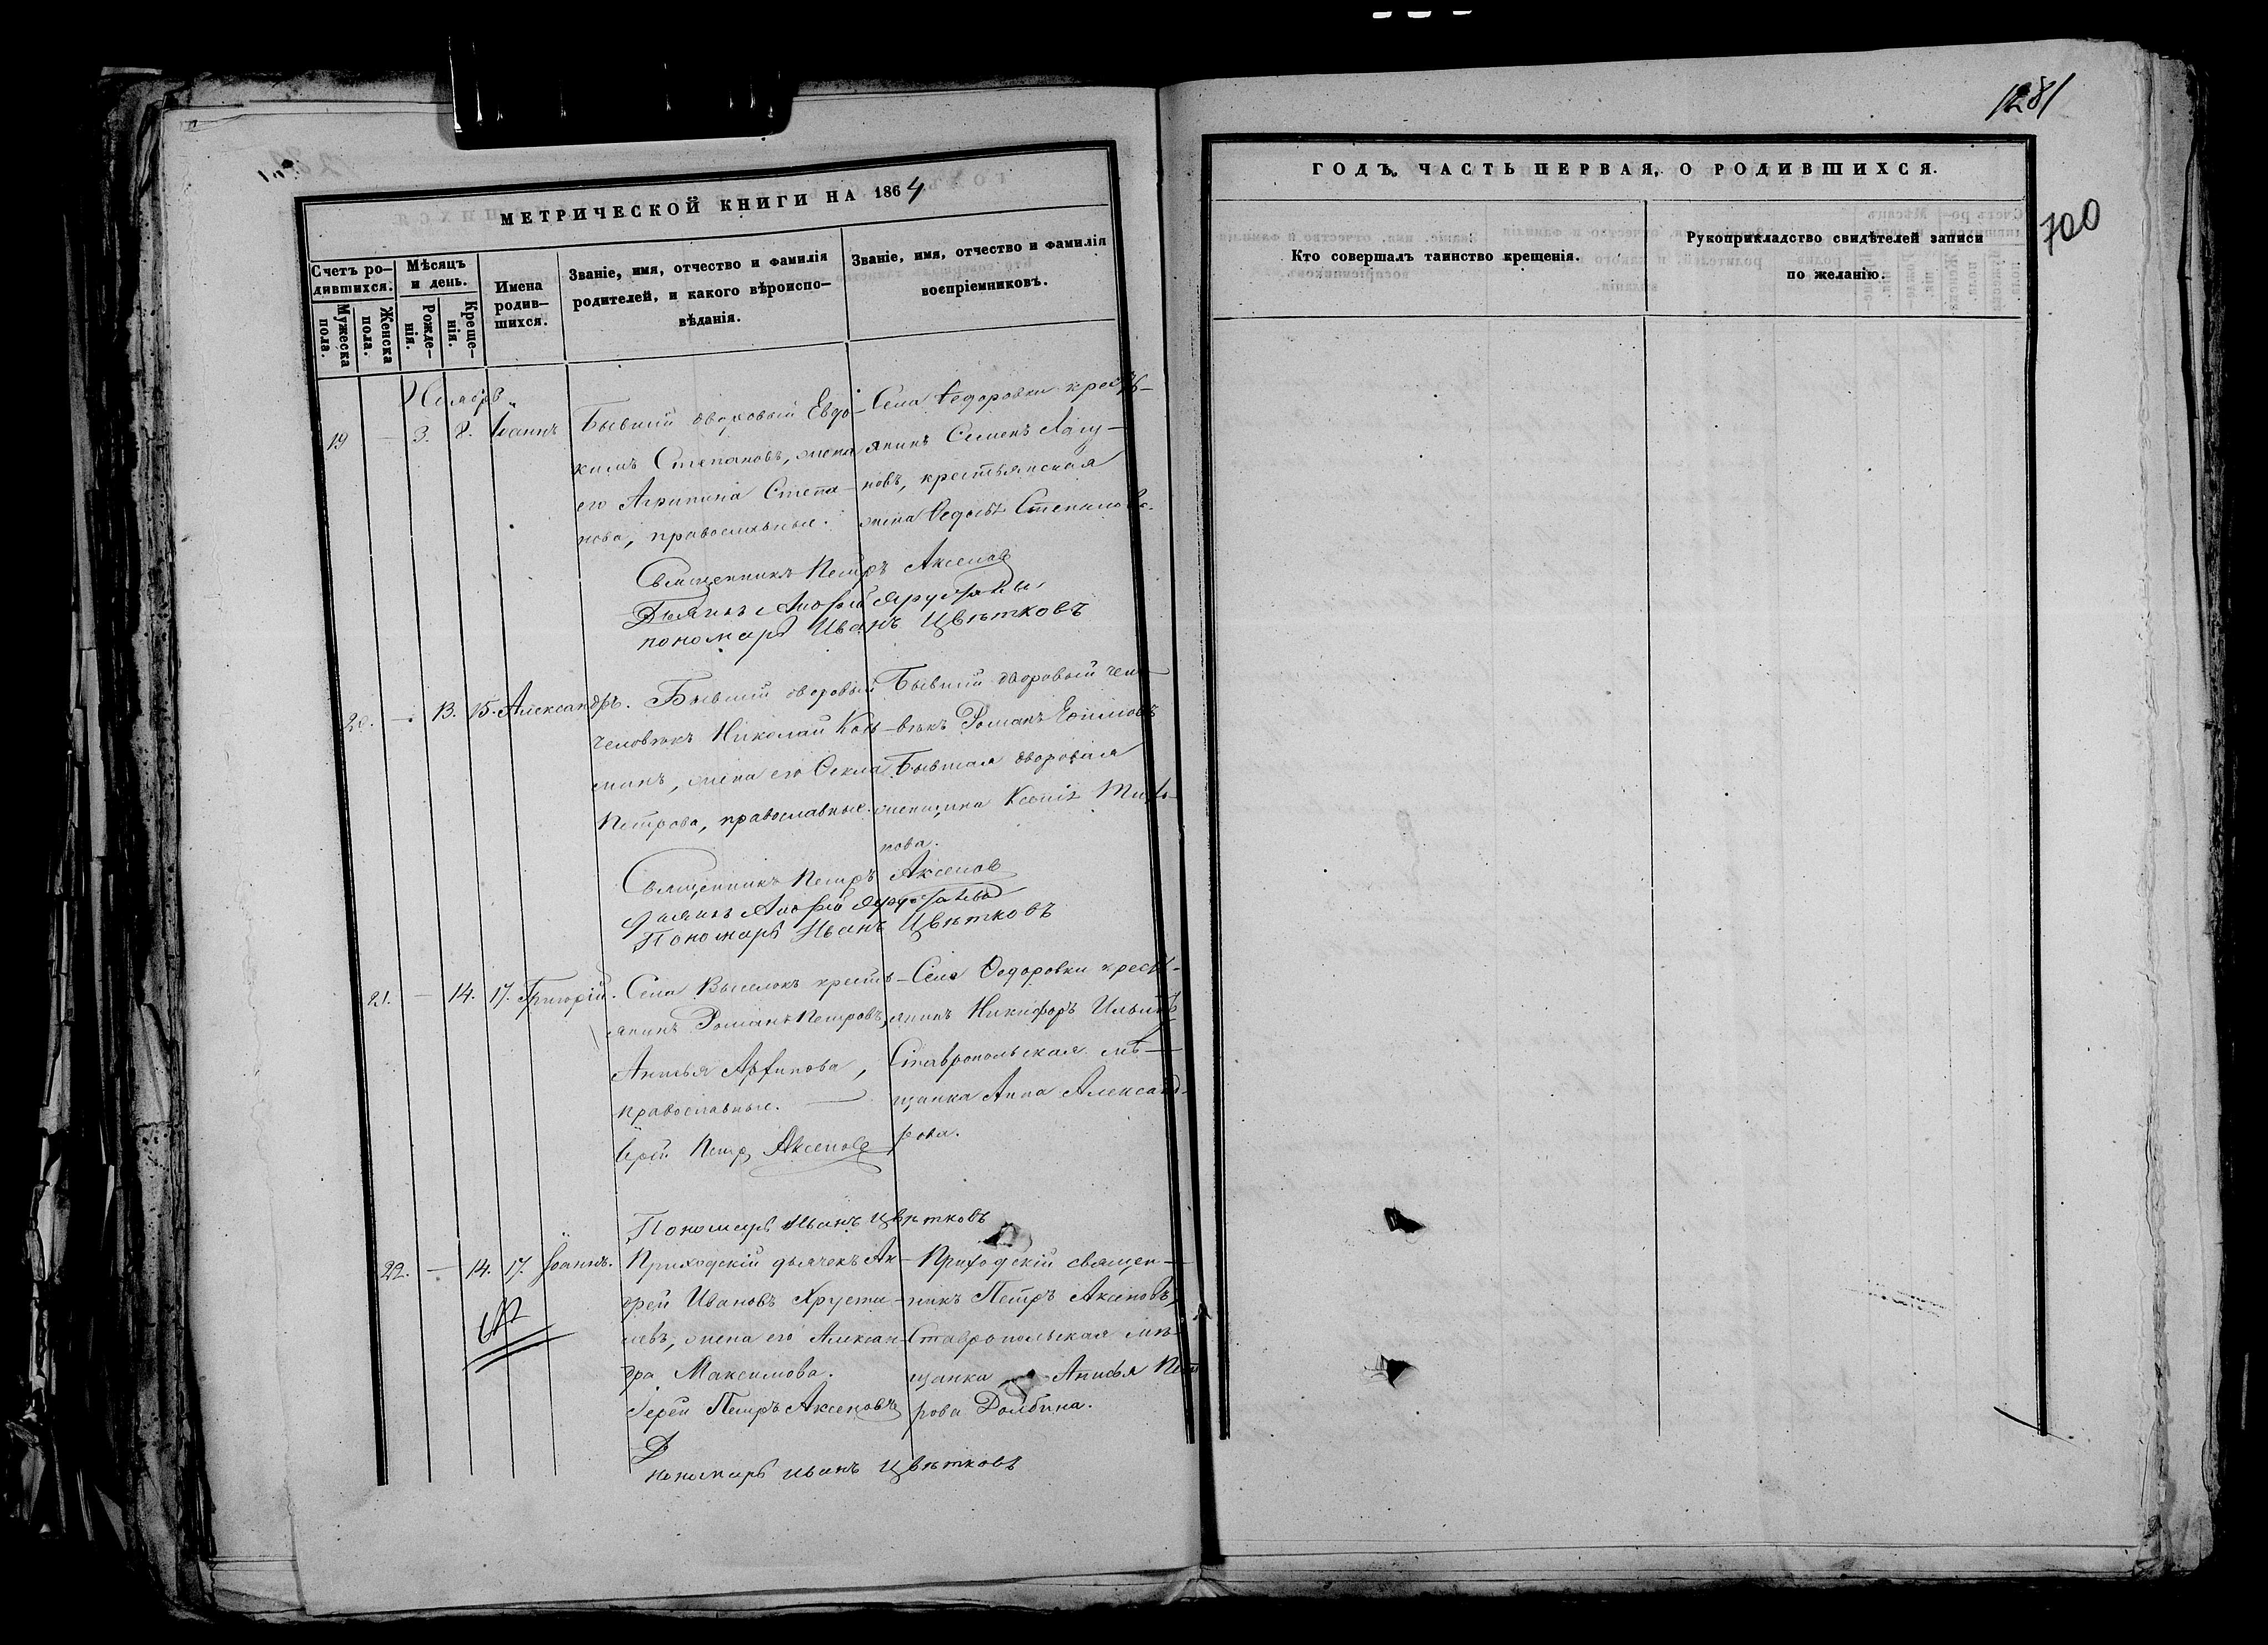 МЕТРИЧЕСКОЙ КНИГИ НА 1864
Счетъ ро-
дившихся.
Мужеска
пола.
Женска
пола.
Мѣсяцъ
и день.
Рожде-
нія.
Креще-
нія.
Имена
родив-
шихся.
Званіе, имя, отчество и фамилія
родителей, и какого вѣроиспо-
вѣданія.
Званіе, имя, отчество и фамилія
воспріемниковъ.
Ноябрь
19 — 3. 8. Іоаннъ
Бывшій дворовый Евдо-
кимъ Степановъ, жена
его Агрипина Степа-
нова, православные.
Села Ѳедоровки кресть-
янинъ Семенъ Лагу-
новъ, крестьянская
жена Ѳедосья Степанова.
Священникъ Петръ Аксеновъ
Дьячекъ Андрей Хрусталевъ
пономарь Иванъ Цвѣтковъ
20. — 13. 15. Александръ.
Бывшій дворовый
человѣкъ Николай Козь-
минъ, жена его Ѳекла
Петрова, православные.
Бывшій дворовый чело-
вѣкъ Романъ Ефимовъ
Бывшая дворовая
женщина Ксенія
нова.
Священникъ Петръ Аксеновъ
Дьячекъ Андрей Хрусталевъ
Пономарь Иванъ Цвѣтковъ
21. — 14. 17. Григорій.
Села Выселокъ кресть-
янинъ Романъ Петровъ,
Анисья Архипова,
православные.
Села Ѳедоровки кресть-
янинъ Никифоръ Ильинъ
Ставропольская мѣ-
щанка Анна Александ-
рова.
Іерей Петръ Аксеновъ
Пономарь Иванъ Цвѣтковъ
22. — 14. 17. Іоаннъ.
Приходскій дьячекъ Ан-
дрей Ивановъ Хруста-
левъ, жена его Алексан-
дра Максимова.
Приходскій священ-
никъ Петръ Аксеновъ,
Ставропольская мѣ-
щанка Анисья Пет
рова Долбина.
Іерей Петръ Аксеновъ
Д
пономарь Иванъ Цвѣтковъ
1281
700
ГОДЪ, ЧАСТЬ ПЕРВАЯ, О РОДИВШИХСЯ.
Кто совершалъ таинство крещенія.
Рукоприкладство свидѣтелей записи
по желанію.